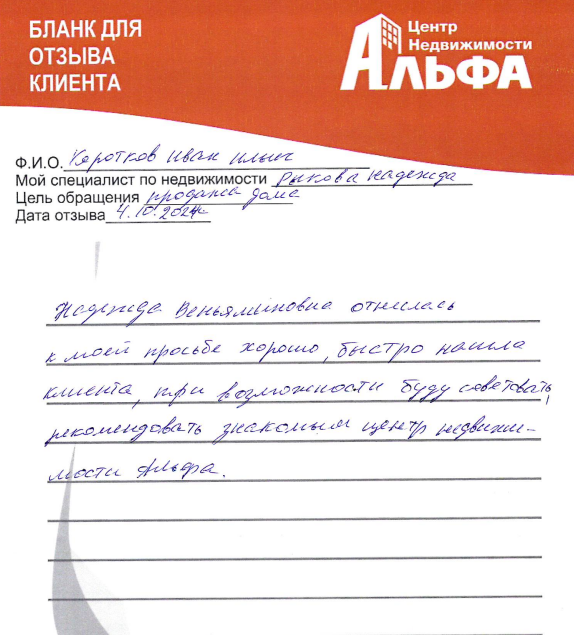 БЛАНК ДЛЯ
ОТЗЫВА
КЛИЕНТА
Центр
Недвижимости
АЛЬФА
Ф.И.О. Коротков Иван Ильич
Мой специалист по недвижимости Рыкова Надежда
Цель обращения продажа дома
Дата отзыва 4.10.2024г
Надежда Веньяминовна отнеслась
к моей просьбе хорошо, быстро нашла
клиента, при возможности буду советовать,
рекомендовать знакомым центр недвижи-
мости Альфа.